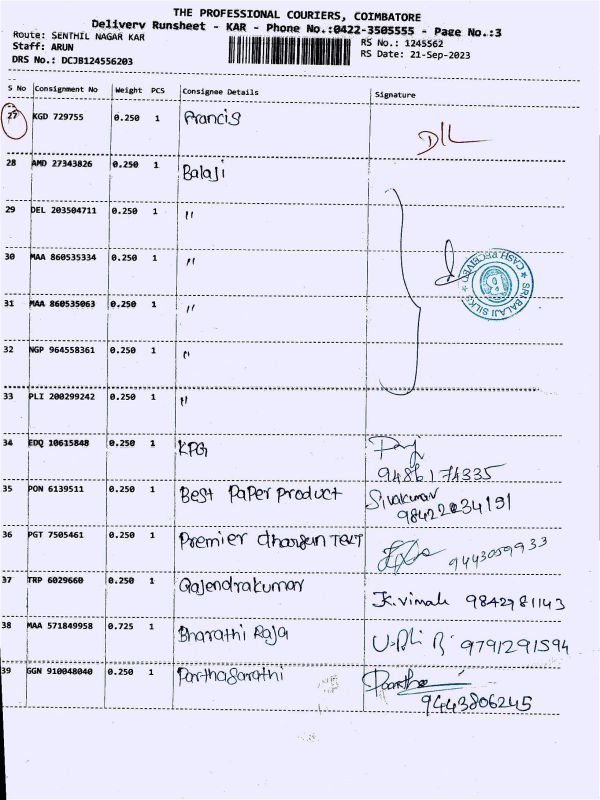 THE PROFESSIONAL COURIERS, COIMBATORE
Delivery Runsheet - KAR - Phone No.:0422-3505555 - Page No.:3
Route: SENTHIL NAGAR KAR
RS No.: 1245562
Staff: ARUN
RS Date: 21-Sep-2023
DRS No.: DCJB124556203
S No Consignment No Weight PCS Consignee Details Signature
27 KGD 729755 0.250 1 Francis DIL
28 AMD 27343826 0.250 1 Balaji
29 DEL 203504711 0.250 1 "
30 MAA 860535334 0.250 1 "
SRI BALAJI SILKS
CASH RECEIVED
31 MAA 860535063 0.250 1 "
32 NGP 964558361 0.250 1 "
33 PLI 200299242 0.250 1 "
34 EDQ 10615848 0.250 1 KPG
9486174335
35 PON 6139511 0.250 1 Best Paper Product Sivakumar
36 PGT 7505461 0.250 1 Premier 9443059933
37 TRP 6029660 0.250 1 Gajendrakumar
K.Vimala 9842981143
38 MAA 571849958 0.725 1 Bharathi Raja 9791291594
39 GGN 910048040 0.250 1 Parthasarathi Paartha
9443806245